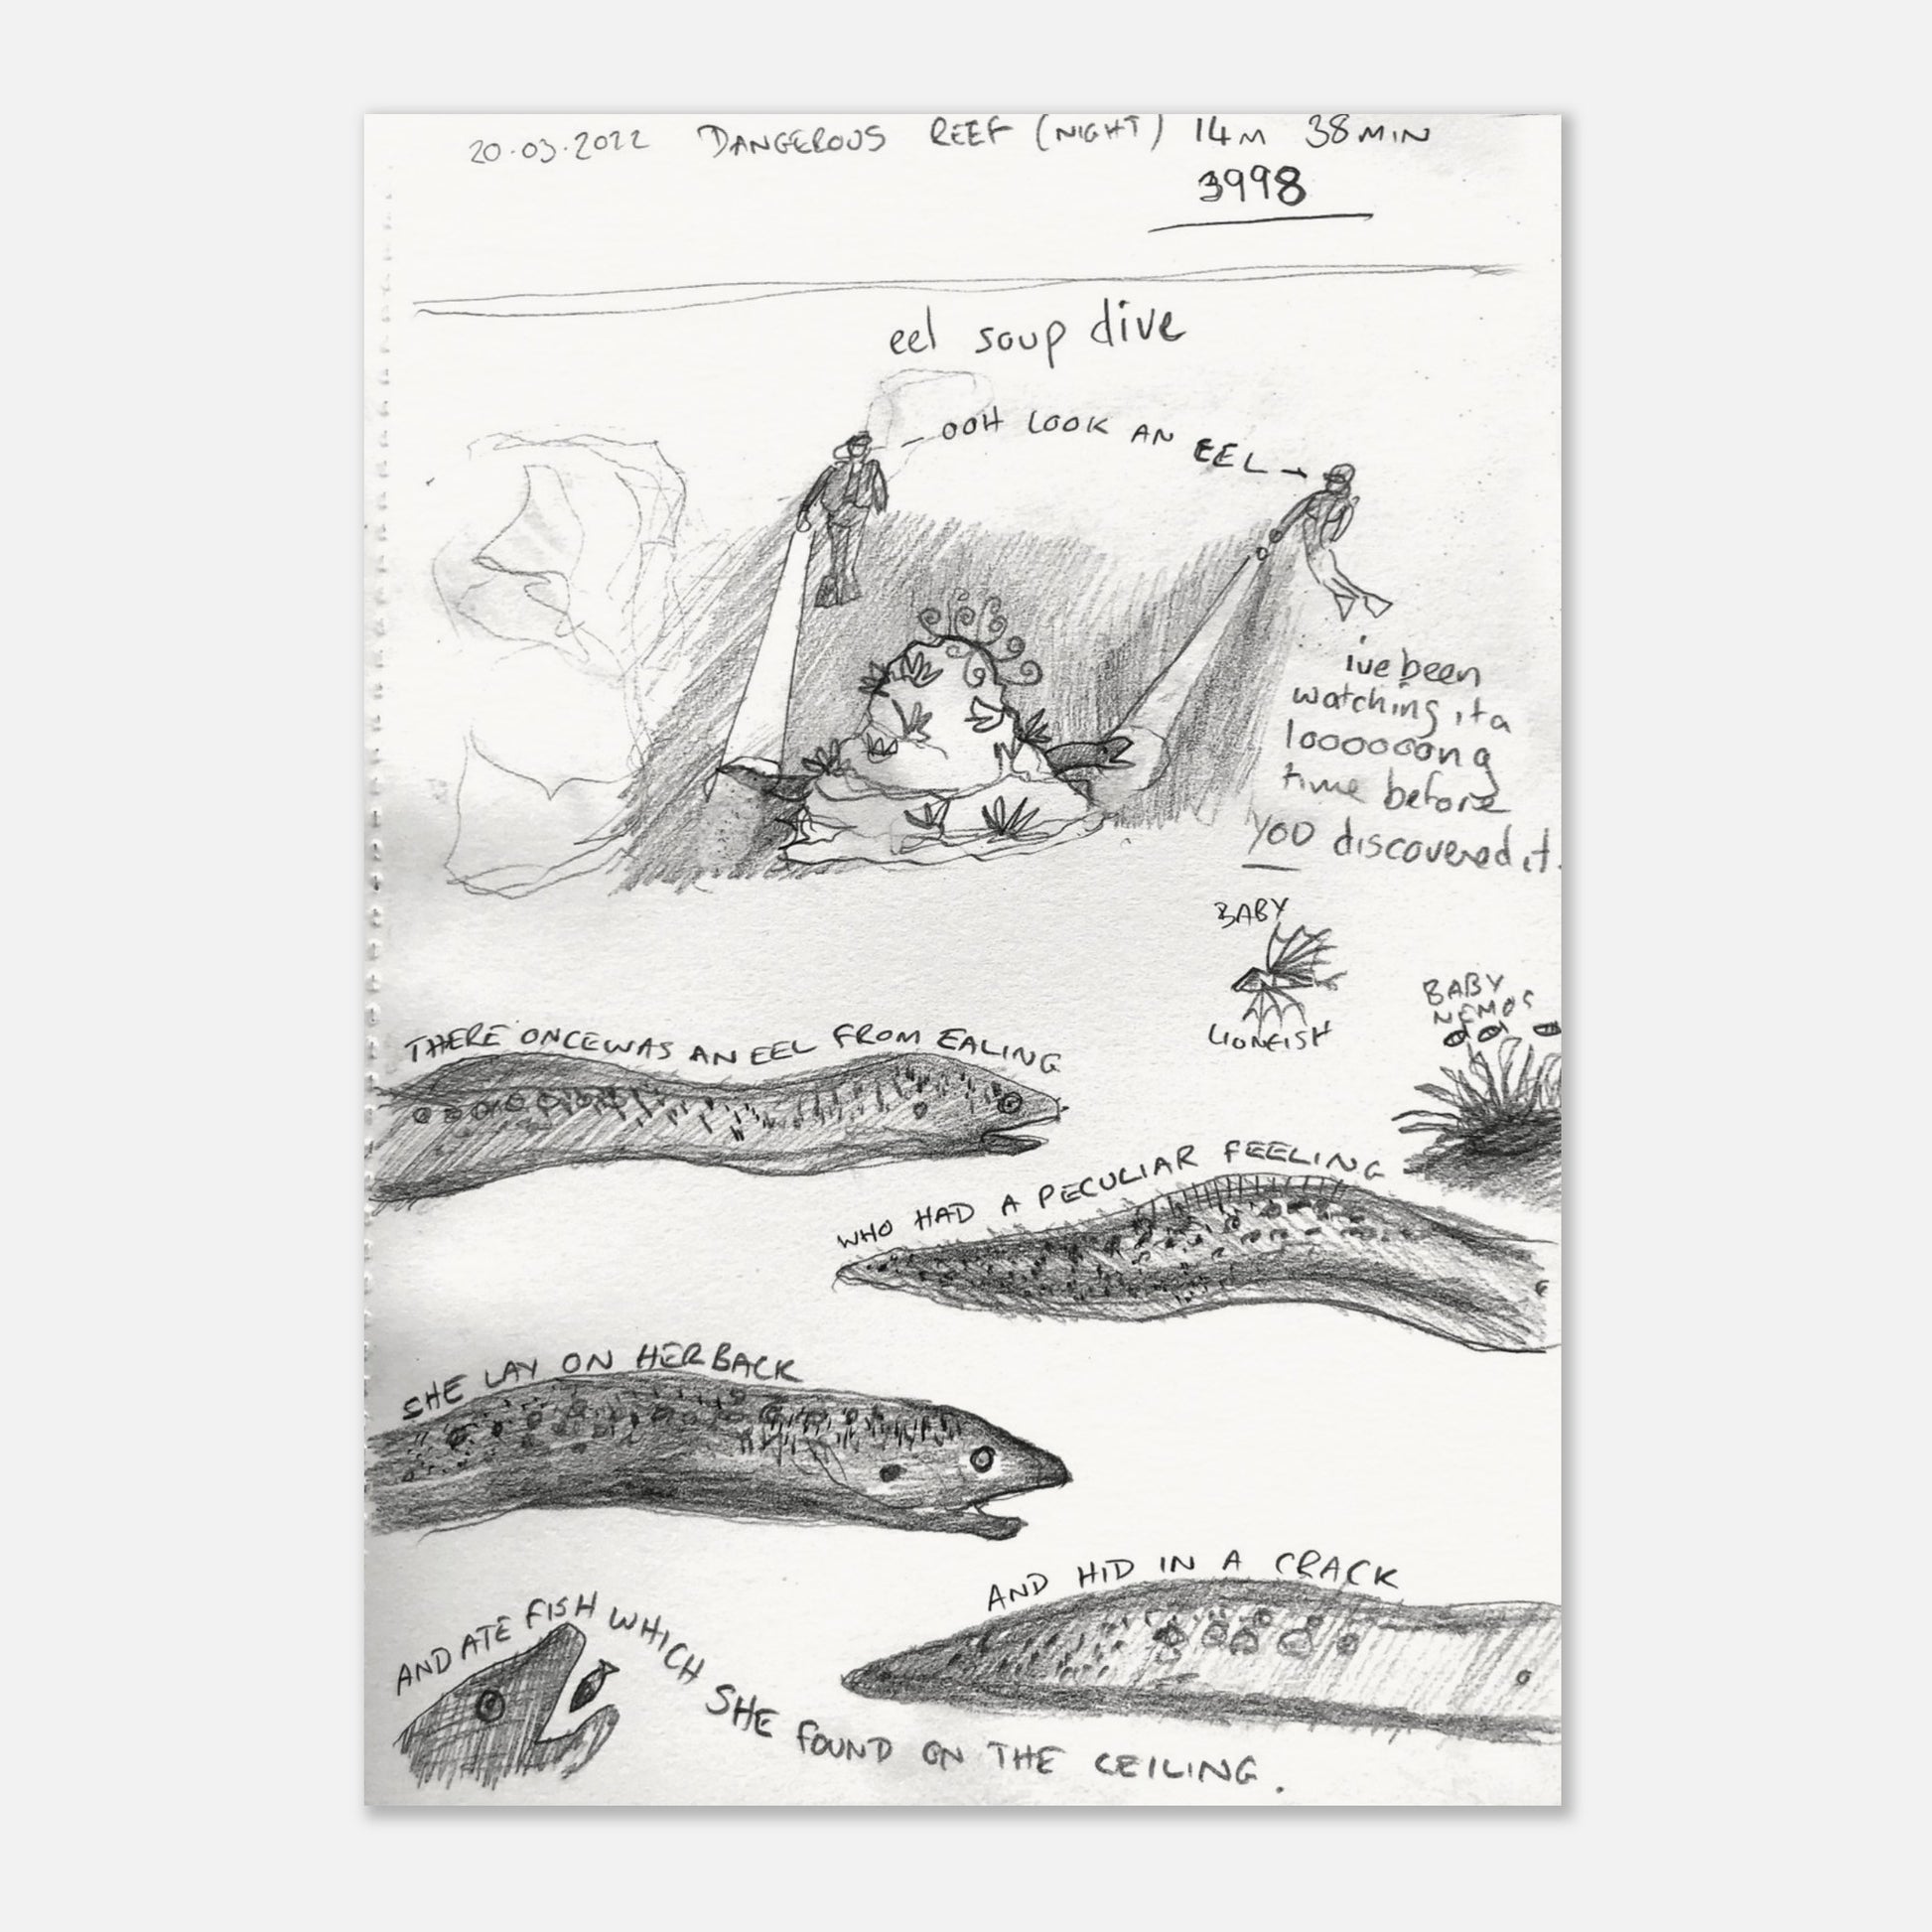 20.03.2022 DANGEROUS REEF (NIGHT) 14M 38MIN
3998
eel soup dive
OOH LOOK AN EEL
ive been
watching it a
looooooong
time before
YOU discovered it.
BABY
LIONFISH
BABY
NEMOS
THERE ONCE WAS AN EEL FROM EALING
WHO HAD A PECULIAR FEELING
SHE LAY ON HER BACK
AND HID IN A CRACK
AND ATE FISH WHICH SHE FOUND ON THE CEILING.